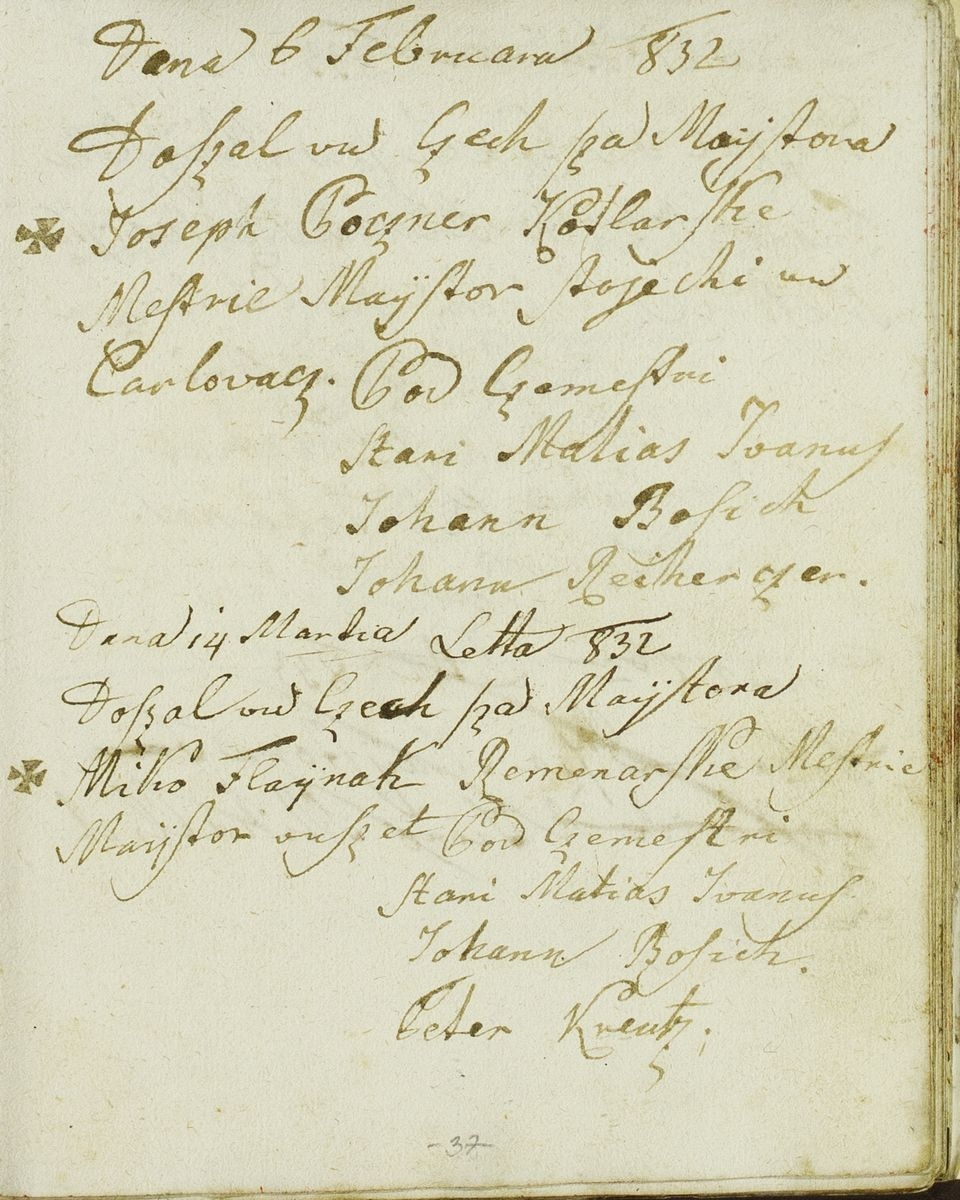 Dana 6 Februara 832
Doſzal vu Czech za Maÿstora
Joseph Poczner Kotlarske
Meſtrie Maÿstor stojechi vu
Carlovacz. Pod Czemeſtri
Stari Matias Ivanuſ
Johann Boſich
Johann Reiherczer.
Dana 14 Martia Letta 832
Doſzal vu Czech za Maÿstora
Miko Flaÿnak Remenarske Meſtrie
Maÿstor vuszet Pod Czemeſtri
Stari Matias Ivanuſ
Johann Boſich.
Peter Kreutz.
- 37 -